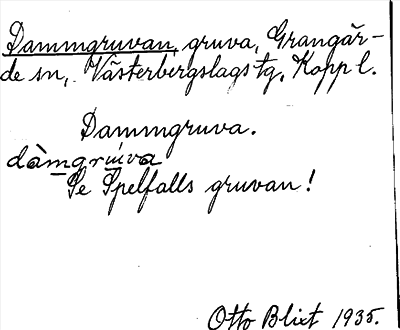 Dammgruvan, gruva, Grangär-
de sn, Västerbergslags tg, Kopp l.
Dammgruva.
dàmgrú̲va
Se Spelfalls gruvan!
Otto Blixt 1935.